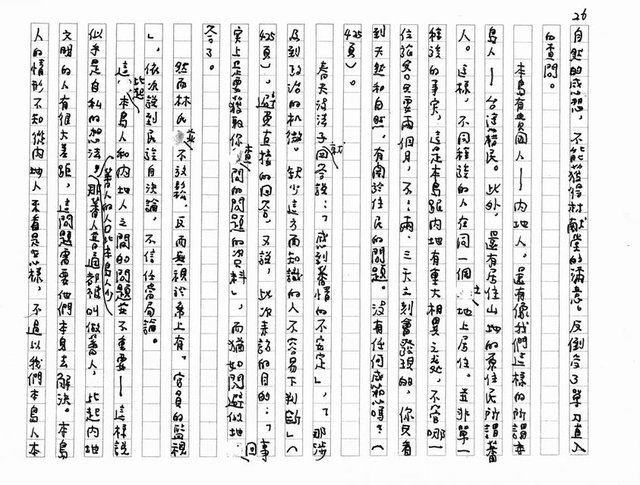 26
自然的感想,不能獲得林獻堂的滿意。反倒受了單刀直入
的查問。
本島有異國人——內地人。還有像我們這樣的所謂本
島人——台灣移民。此外,還有居住山地的原住民所謂蕃
人。這樣,不同種族的人在同一個土地上居住。並非單一
種族的事實,這是本島跟內地有重大相異之處,不管哪一
位旅客只要兩個月,不,兩、三天之刻會發現的,你只看
到天然和自然,有關於住民的問題。沒有任何感觸嗎?(
425頁)。
春夫沒法子就回答說:「感到蕃情的不安定」,「那涉
及到政治的機微。缺少這方面知識的人不容易下判斷」(
425頁),避更直接的回答。又說,此次來訪的目的:「事
實上是要獲取你查問的問題的資料」,而猶如閃避似地回
答了。
然而林氏並不放鬆,反而無視於席上有。官員的監視
」,依次談到民族自決論。不信任當局論。
這比起本島人和內地人之間的問題並不重要——這樣說
似乎是自私的想法,蕃人的人口比本島人少,那蕃人普通都被叫做蕃人,比起內地
文明的人有很大差距,這問題需要他們本身去解決。本島
人的情形不知從內地人來看是怎樣,不過以我們本島人本